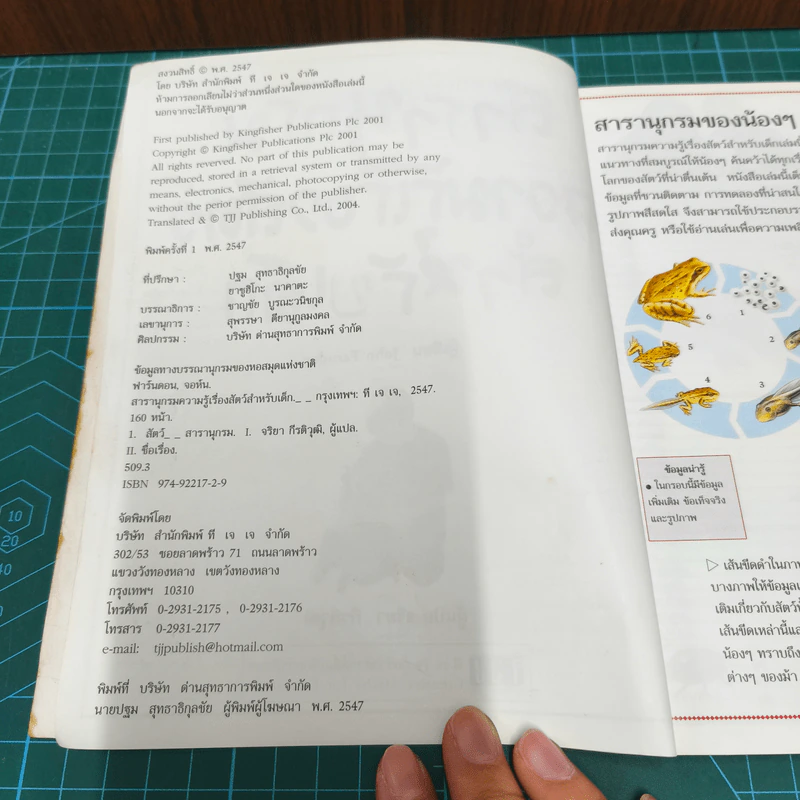 สงวนสิทธิ์ © พ.ศ. 2547
โดย บริษัท สำนักพิมพ์ ที เจ เจ จำกัด
ห้ามการลอกเลียนไม่ว่าส่วนหนึ่งส่วนใดของหนังสือเล่มนี้
นอกจากจะได้รับอนุญาต
First published by Kingfisher Publications Plc 2001
Copyright © Kingfisher Publications Plc 2001
All rights reverved. No part of this publication may be
reproduced, stored in a retrieval system or transmitted by any
means, electronics, mechanical, photocopying or otherwise,
without the perior permission of the publisher.
Translated & © TJJ Publishing Co., Ltd., 2004.
พิมพ์ครั้งที่ 1 พ.ศ. 2547
ที่ปรึกษา : ปฐม สุทธาธิกุลชัย
ยาซูฮิโกะ นาคาตะ
บรรณาธิการ : ชาญชัย บูรณะวนิชกุล
เลขานุการ : สุพรรษา ตียานุกูลมงคล
ศิลปกรรม : บริษัท ด่านสุทธาการพิมพ์ จำกัด
ข้อมูลทางบรรณานุกรมของหอสมุดแห่งชาติ
ฟาร์นดอน, จอห์น.
สารานุกรมความรู้เรื่องสัตว์สำหรับเด็ก._ _ กรุงเทพฯ: ที เจ เจ, 2547.
160 หน้า.
1. สัตว์_ _ สารานุกรม. I. จริยา กีรติวุฒิ, ผู้แปล.
II. ชื่อเรื่อง.
509.3
ISBN 974-92217-2-9
จัดพิมพ์โดย
บริษัท สำนักพิมพ์ ที เจ เจ จำกัด
302/53 ซอยลาดพร้าว 71 ถนนลาดพร้าว
แขวงวังทองหลาง เขตวังทองหลาง
กรุงเทพฯ 10310
โทรศัพท์ 0-2931-2175 , 0-2931-2176
โทรสาร 0-2931-2177
e-mail: tjjpublish@hotmail.com
พิมพ์ที่ บริษัท ด่านสุทธาการพิมพ์ จำกัด
นายปฐม สุทธาธิกุลชัย ผู้พิมพ์ผู้โฆษณา พ.ศ. 2547
สารานุกรมของน้องๆ
สารานุกรมความรู้เรื่องสัตว์สำหรับเด็กเล่มนี้
แนวทางที่สมบูรณ์ให้น้องๆ ค้นคว้าได้ทุกเรื่อง
โลกของสัตว์ที่น่าตื่นเต้น หนังสือเล่มนี้
ข้อมูลที่ชวนติดตาม การทดลองที่น่าสนใจ
รูปภาพสีสดใส จึงสามารถใช้ประกอบ
ส่งคุณครู หรือใช้อ่านเล่นเพื่อความ
6
1
5
2
4
3
ข้อมูลน่ารู้
• ในกรอบนี้มีข้อมูล
เพิ่มเติม ข้อเท็จจริง
และรูปภาพ
▷ เส้นขีดดำในภาพ
บางภาพให้ข้อมูล
เติมเกี่ยวกับสัตว์
เส้นขีดเหล่านี้
น้องๆ ทราบถึง
ต่างๆ ของม้า
10
20
40